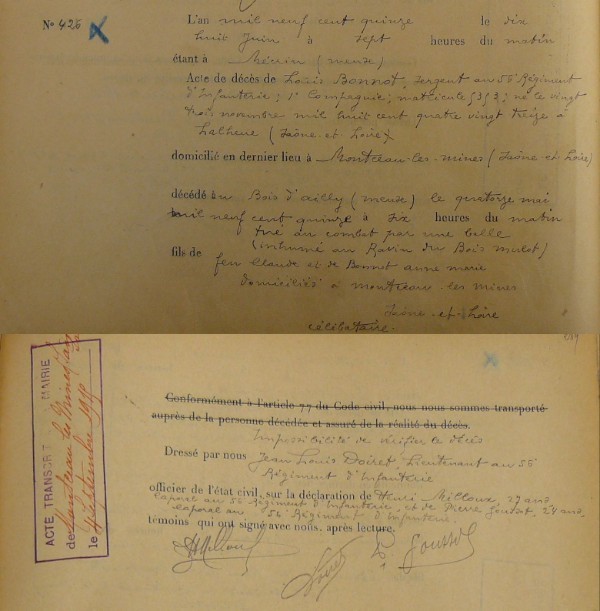 No 426
L'an mil neuf cent quinze le dix
huit Juin à sept heures du matin
étant à Mécrin (meuse)
Acte de décès de Louis Bonnot, Sergent au 56 Régiment
d'Infanterie, 1e Compagnie; matricule 5353; né le vingt
trois novembre mil huit cent quatre vingt treize à
(Saône-et-Loire)
domicilié en dernier lieu à Montceau-les-mines (Saône-et-Loire)
décédé au Bois d'ailly (meuse) le quatorze mai
mil neuf cent quinze à six heures du matin
tué au combat par une balle
(inhumé au Ravin du Bois mulot)
fils de feu Claude et de Bonnot anne marie
domiciliés à montceau-les mines
Saône-et-Loire
célibataire.
Conformément à l'article 77 du Code civil, nous nous sommes transporté
auprès de la personne décédée et assuré de la réalité du décès.
Impossibilité de vérifier le décès
Dressé par nous Jean Louis Doiret Lieutenant au 56
Régiment d'Infanterie
officier de l'état civil, sur la déclaration de Henri Milloux, 27 ans
caporal au 56 Régiment d'Infanterie, et de Pierre Goussot, 24 ans,
caporal au 56 Régiment d'Infanterie.
témoins qui ont signé avec nous, après lecture.
HMilloux Doiret P. Goussot
ACTE TRANSCRIT MAIRIE
de Montceau les Mines
le 4 septembre